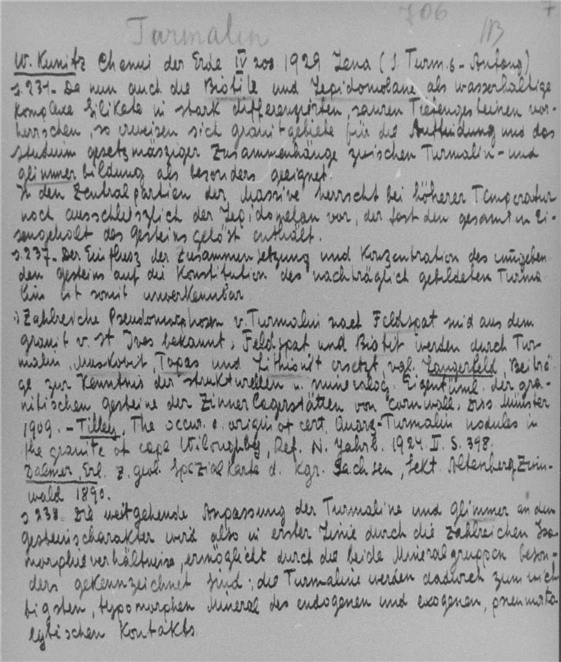 706 7
Turmalin NB
W. Kunitz Chemie der Erde IV 208 1929 Jena (S. Turm. 6 - Anfang)
S. 231- Da nun auch die Biotite und Lepidomelane als wasserhaltige
komplexe Silikate in stark differenzierten, sauren Tiefengesteinen vor-
herrschen, so erweisen sich granitgebiete für die Aufbuidung und das
Studium gesetzmäsziger Zusammenhänge zwischen Turmalin- und
glimmerbildung als besonders geeignet.
In den Zentralpartien der Massive herrscht bei höherer Temperatur
noch ausschlieszlich der Lepidomelan vor, der fast den gesamten Ei-
sengehalt des Gesteins gelöst enthält.
S. 237- Der Einflusz der Zusammensetzung und Konzentration des umgeben
den gesteins auf die Konstitution des nachträglich gebildeten Turma-
lins ist somit unverkennbar
Zahlreiche Pseudomorphosen v. Turmalin nach Feldspat sind aus dem
granit v. St Ives bekannt, Feldspat und Biotit werden durch Tur-
malin, Muskovit, Topas und Lithionit ersetzt vgl. Langerfeld, Beiträ
ge zur Kenntnis der strukturellen u. mineralog. Eigentüml. der gra-
nitischen gesteine der Zinnerlagerstätten von Cornwall, Diss Münster
1909. - Tilley, The occur. a. origin of cert. Quarz-Turmalin nodules in
the granite of cape Willoughby, Ref. N. Jahrb. 1924. I. S. 398.
Dalmer, Erl. z. geol. Spezialkarte d. Kgr. Sachsen, Sekt. Altenberg Zinn-
wald 1890.
S 238- Die weitgehende Anpassung der Turmaline und glimmer an den
gesteinscharakter wird also in erster Linie durch die zahlreichen Iso
morphieverhältnisse, ermöglicht durch die beide Mineralgruppen beson-
ders gekennzeichnet sind; die Turmaline werden dadurch zum wich
tigsten, typomorphen Mineral des endogenen und exogenen, pneumato
lytischen Kontakts